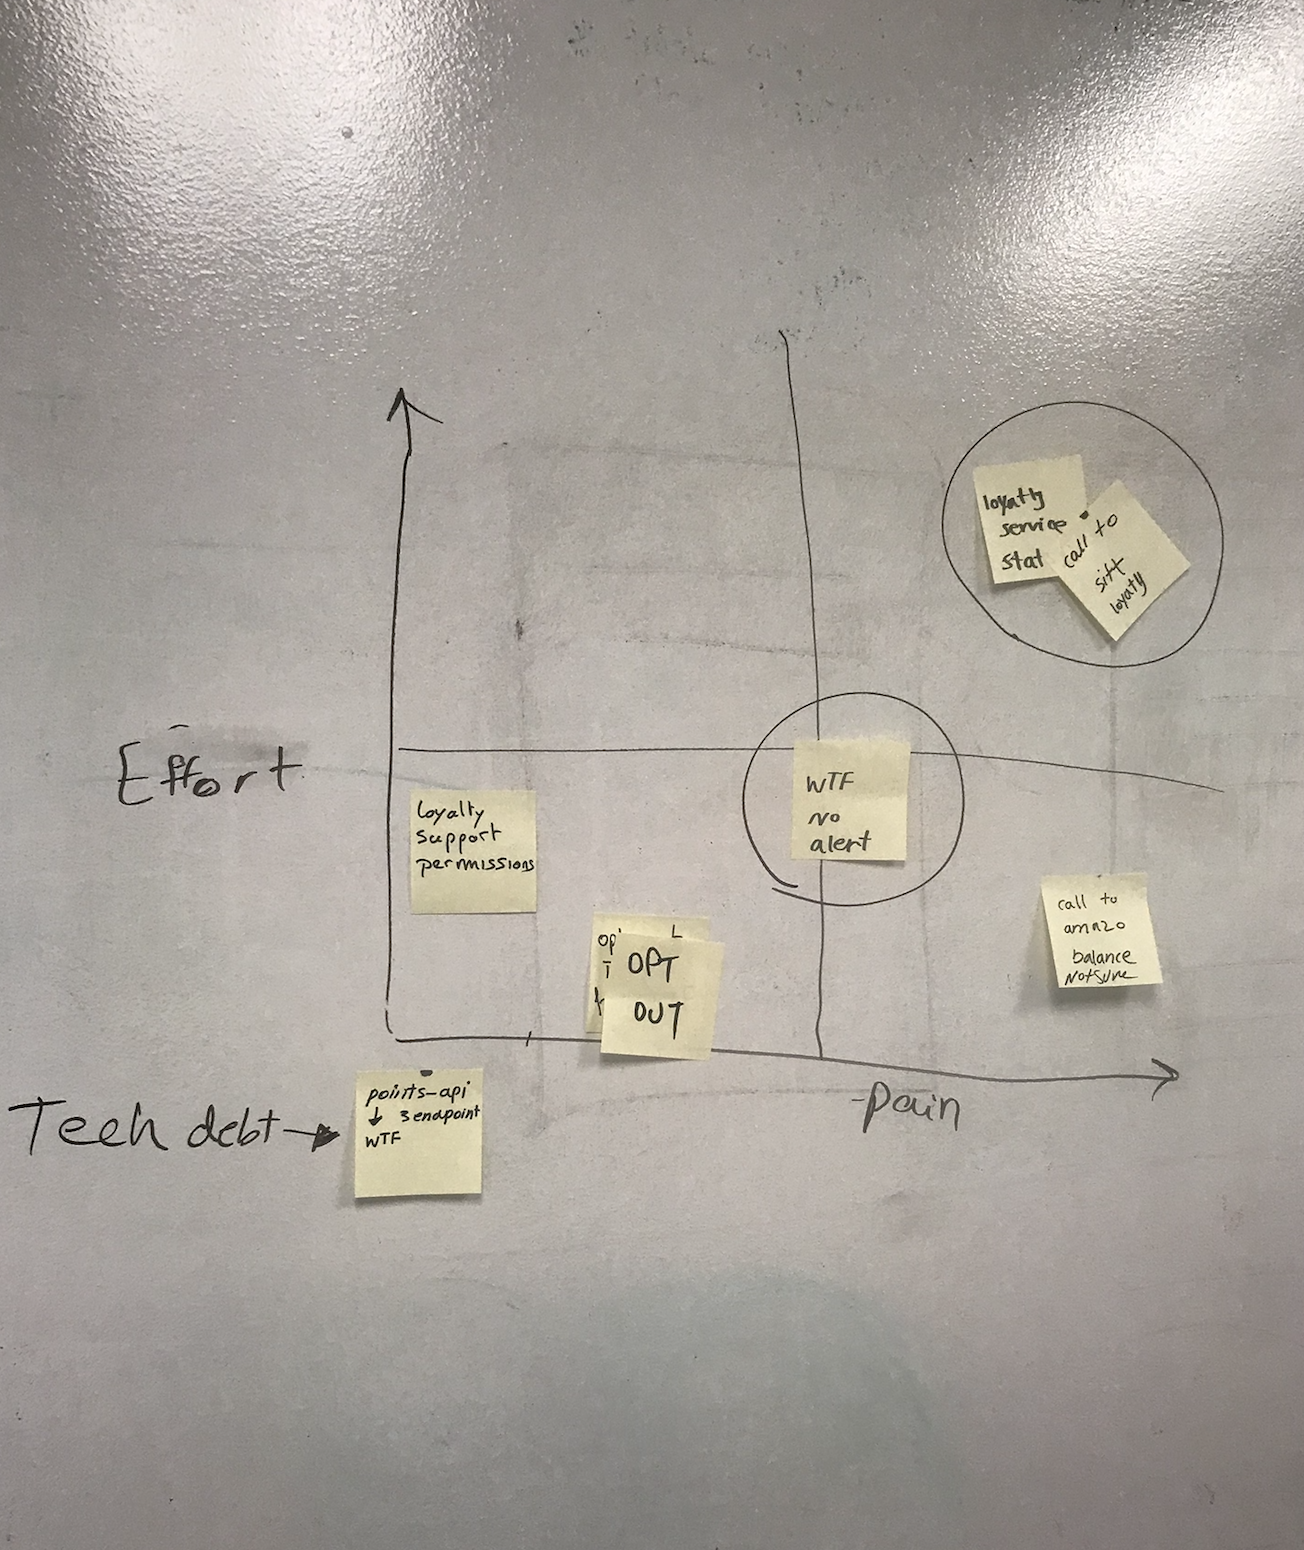 loyatly
service
stat
call to
sift
loyatly
Effort
WTF
No
alert
Loyalty
support
permissions
call to
amazo
balance
Notsure
op
OPT
OUT
Pain
Tech debt
points-api
↓ 3 endpoint
WTF